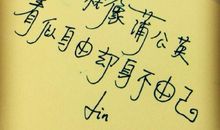 好像蒲公英
看似自由却身不由己
lin